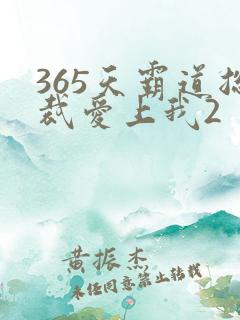 365天霸道总
裁爱上我2
黄振杰
未经同意禁止转载